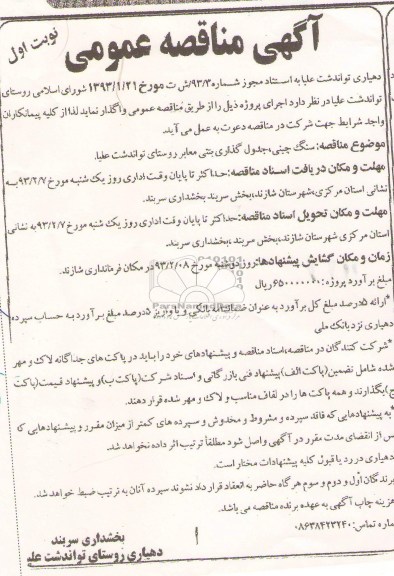 نوبت اول
آگهی مناقصه عمومی
دهیاری تواندشت علیا به استناد مجوز شماره ۹۳/۳/ش ت مورخ ۱۳۹۳/۱/۲۱ شورای اسلامی روستای
تواندشت علیا در نظر دارد اجرای پروژه ذیل را از طریق مناقصه عمومی واگذار نماید لذا از کلیه پیمانکاران
واجد شرایط جهت شرکت در مناقصه دعوت به عمل می آید.
موضوع مناقصه: سنگ چینی، جدول گذاری بتنی معابر روستای تواندشت علیا.
مهلت و مکان دریافت اسناد مناقصه: حداکثر تا پایان وقت اداری روز یک شنبه مورخ ۹۳/۲/۷ به
نشانی استان مرکزی، شهرستان شازند، بخش سربند بخشداری سربند.
مهلت و مکان تحویل اسناد مناقصه: حداکثر تا پایان وقت اداری روز یک شنبه مورخ ۹۳/۲/۷ به نشانی
استان مرکزی شهرستان شازند، بخش سربند، بخشداری سربند.
زمان و مکان گشایش پیشنهادها: روز دوشنبه مورخ ۹۳/۲/۰۸ در مکان فرمانداری شازند.
مبلغ برآورد پروژه: ۶۵۰۰۰۰۰۰۰ ریال
*ارائه ۵درصد مبلغ کل برآورد به عنوان ضمانتنامه بانکی و یا واریز ۵درصد مبلغ برآورد به حساب سپرده
دهیاری نزد بانک ملی
*شرکت کنندگان در مناقصه، اسناد مناقصه و پیشنهادهای خود را باید در پاکت های جداگانه لاک و مهر
شده شامل تضمین(پاکت الف)پیشنهاد فنی بازرگانی و اسناد شرکت(پاکت ب)و پیشنهاد قیمت(پاکت
ج)بگذارند و همه پاکت ها را در لفاف مناسب و لاک و مهر شده قرار دهند.
*به پیشنهادهایی که فاقد سپرده و مشروط و مخدوش و سپرده های کمتر از میزان مقرر و پیشنهادهایی که
پس از انقضای مدت مقرر در آگهی واصل شود مطلقاً ترتیب اثر داده نخواهد شد.
دهیاری در رد یا قبول کلیه پیشنهادات مختار است.
برندگان اول و دوم و سوم هرگاه حاضر به انعقاد قرار داد نشوند سپرده آنان به ترتیب ضبط خواهد شد.
هزینه چاپ آگهی به عهده برنده مناقصه می باشد.
شماره تماس: ۰۸۶۳۸۴۲۳۲۴۰
بخشداری سربند
دهیاری روستای تواندشت علی